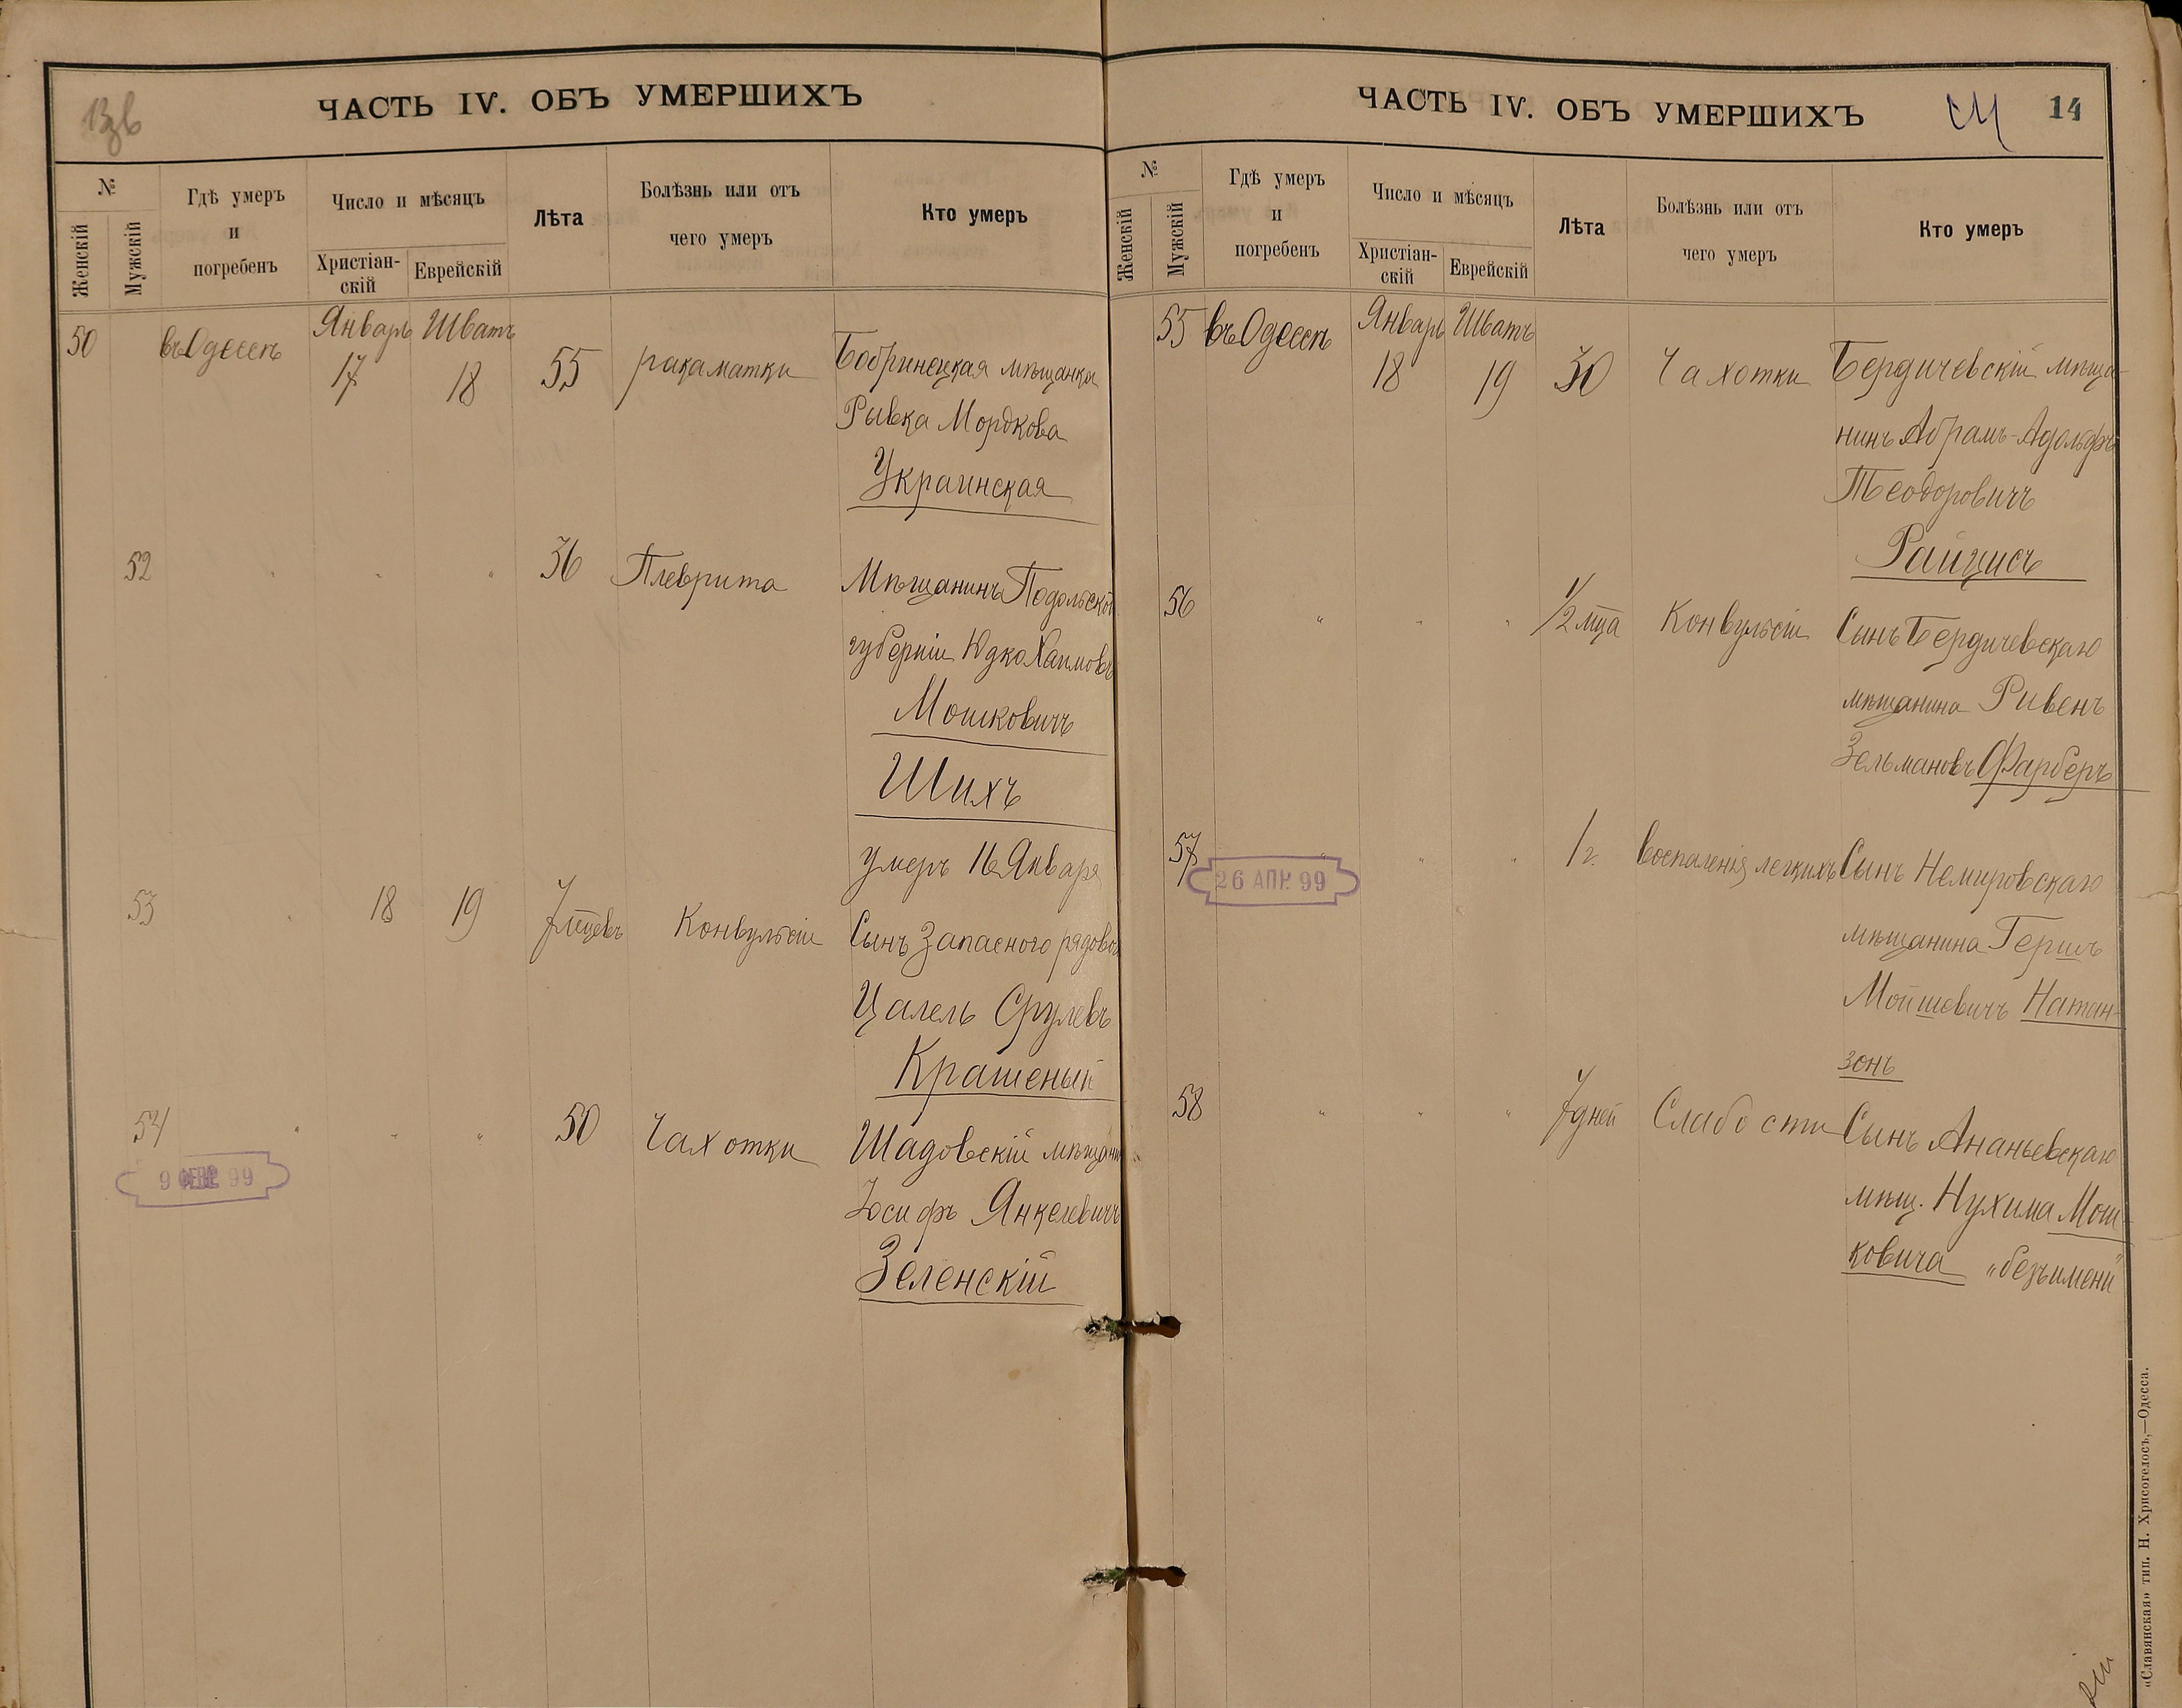 ЧАСТЬ IV. ОБЪ УМЕРШИХЪ
№
Женскій
Мужскій
Гдѣ умеръ
и
погребенъ
Число и мѣсяцъ
Христіан-
скій
Еврейскій
Лѣта
Болѣзнь или отъ
чего умеръ
Кто умеръ
50 въ Одессѣ Январь 17 Шватъ 18 55 рака матки Бобринецкая мѣщанка
Рывка Мордкова
Украинская
52 " " " 36 Плеврита Мѣщанинъ Подольской
губерніи Юдко Хаимовъ
Мошковичъ
Шихъ
умеръ 16 Января
53 " 18 19 7 мцевъ Конвульсіи Сынъ запасного рядового
Цалель Срулевъ
Крашеный
54 " " " 50 Чахотки Шадовскій мѣщанинъ
Іосифъ Янкелевичъ
Зеленскій
9 ФЕВР 99
ЧАСТЬ IV. ОБЪ УМЕРШИХЪ
14
№
Женскій
Мужскій
Гдѣ умеръ
и
погребенъ
Число и мѣсяцъ
Христіан-
скій
Еврейскій
Лѣта
Болѣзнь или отъ
чего умеръ
Кто умеръ
55 въ Одессѣ Январь 18 Шватъ 19 30 Чахотки Бердичевскій мѣща-
нинъ Абрамъ-Адольфъ
Теодоровичъ
Райцисъ
56 " " " 1/2 мца Конвульсіи Сынъ Бердичевскаго
мѣщанина Ривенъ
Зельмановъ Фарберъ
57 " " " 1 г. воспаленія легкихъ Сынъ Немировскаго
26 АПР. 99
мѣщанина Гершъ
Мойшевичъ Натан-
зонъ
58 " " " 7 дней Слабости Сынъ Ананьевскаго
мѣщ. Нухима Мош-
ковича "безъ имени"
«Славянская» тип. Н. Хрисогелосъ,—Одесса.